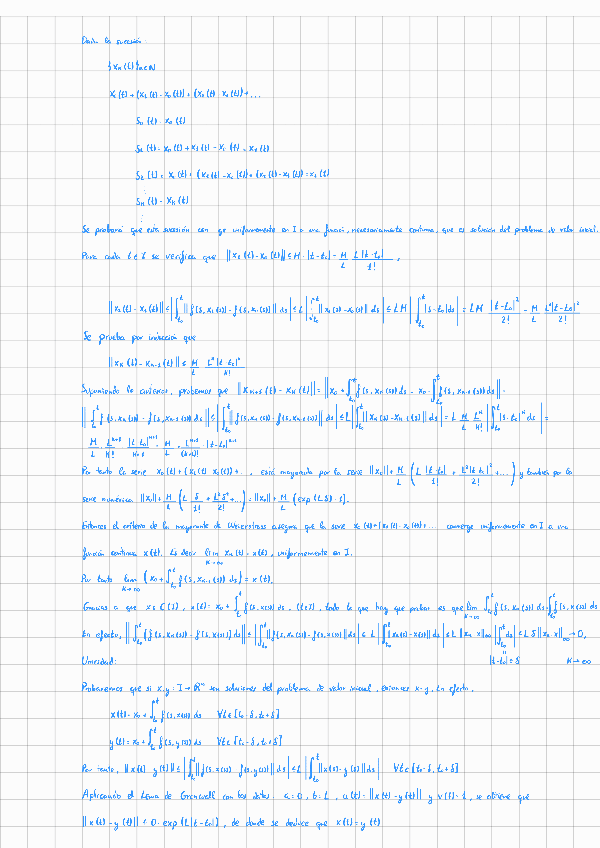 Dada la sucesión:
{x_k(t)}_{k∈N}
x_0(t) + (x_1(t) - x_0(t)) + (x_2(t) - x_1(t)) + ...
S_0(t) = x_0(t)
S_1(t) = x_0(t) + x_1(t) - x_0(t) = x_1(t)
S_2(t) = x_0(t) + (x_1(t) - x_0(t)) + (x_2(t) - x_1(t)) = x_2(t)
⋮
S_k(t) = x_k(t)
⋮
Se probará que esta sucesión converge uniformemente en I a una función, necesariamente continua, que es solución del problema de valor inicial.
Para cada t ∈ I se verifica que ||x_1(t) - x_0(t)|| ≤ M · |t - t_0| = M/L L|t - t_0|/1! ,
||x_2(t) - x_1(t)|| ≤ |∫_{t_0}^t ||f(s, x_1(s)) - f(s, x_0(s))|| ds| ≤ L |∫_{t_0}^t ||x_1(s) - x_0(s)|| ds| ≤ LM |∫_{t_0}^t |s - t_0| ds| = LM |t - t_0|^2/2! = M/L L^2|t - t_0|^2/2!
Se prueba por inducción que
||x_k(t) - x_{k-1}(t)|| ≤ M/L L^k|t - t_0|^k/k!
Suponiendo lo anterior, probemos que ||x_{k+1}(t) - x_k(t)|| = ||x_0 + ∫_{t_0}^t f(s, x_k(s)) ds - x_0 - ∫_{t_0}^t f(s, x_{k-1}(s)) ds|| =
||∫_{t_0}^t f(s, x_k(s)) - f(s, x_{k-1}(s)) ds|| ≤ |∫_{t_0}^t ||f(s, x_k(s)) - f(s, x_{k-1}(s))|| ds| ≤ L |∫_{t_0}^t ||x_k(s) - x_{k-1}(s)|| ds| = L M/L L^k/k! |∫_{t_0}^t |s - t_0|^k ds| =
M/L · L^{k+1}/k! |t - t_0|^{k+1}/k+1 = M/L · L^{k+1}/(k+1)! |t - t_0|^{k+1}
Por tanto la serie x_0(t) + (x_1(t) - x_0(t)) + ... está mayorada por la serie ||x_0|| + M/L (L|t - t_0|/1! + L^2|t - t_0|^2/2! + ...) y también por la
serie numérica ||x_0|| + M/L (L δ/1! + L^2δ^2/2! + ...) = ||x_0|| + M/L (exp(Lδ) - 1).
Entonces el criterio de la mayorante de Weierstrass asegura que la serie x_0(t) + (x_1(t) - x_0(t)) + ... converge uniformemente en I a una
función continua x(t). Es decir lim_{k→∞} x_k(t) = x(t), uniformemente en I.
Por tanto lim_{k→∞} (x_0 + ∫_{t_0}^t f(s, x_{k-1}(s)) ds) = x(t).
Gracias a que x ∈ C(I), x(t) = x_0 + ∫_{t_0}^t f(s, x(s)) ds, (t ∈ I), todo lo que hay que probar es que lim_{k→∞} ∫_{t_0}^t f(s, x_k(s)) ds = ∫_{t_0}^t f(s, x(s)) ds
En efecto, ||∫_{t_0}^t [f(s, x_k(s)) - f(s, x(s))] ds|| ≤ |∫_{t_0}^t ||f(s, x_k(s)) - f(s, x(s))|| ds| ≤ L |∫_{t_0}^t ||x_k(s) - x(s)|| ds| ≤ L ||x_k - x||_∞ |∫_{t_0}^t ds| ≤ L δ ||x_k - x||_∞ → 0,
Unicidad: |t - t_0| = δ k → ∞
Probaremos que si x, y: I → R^n son soluciones del problema de valor inicial, entonces x = y. En efecto,
x(t) = x_0 + ∫_{t_0}^t f(s, x(s)) ds ∀t ∈ [t_0 - δ, t_0 + δ]
y(t) = x_0 + ∫_{t_0}^t f(s, y(s)) ds ∀t ∈ [t_0 - δ, t_0 + δ]
Por tanto, ||x(t) - y(t)|| ≤ |∫_{t_0}^t ||f(s, x(s)) - f(s, y(s))|| ds| ≤ L |∫_{t_0}^t ||x(s) - y(s)|| ds| ∀t ∈ [t_0 - δ, t_0 + δ]
Aplicando el Lema de Gronwall con los datos: a = 0, b = L, u(t) = ||x(t) - y(t)|| y v(t) = 1, se obtiene que
||x(t) - y(t)|| ≤ 0 · exp(L|t - t_0|), de donde se deduce que x(t) = y(t)